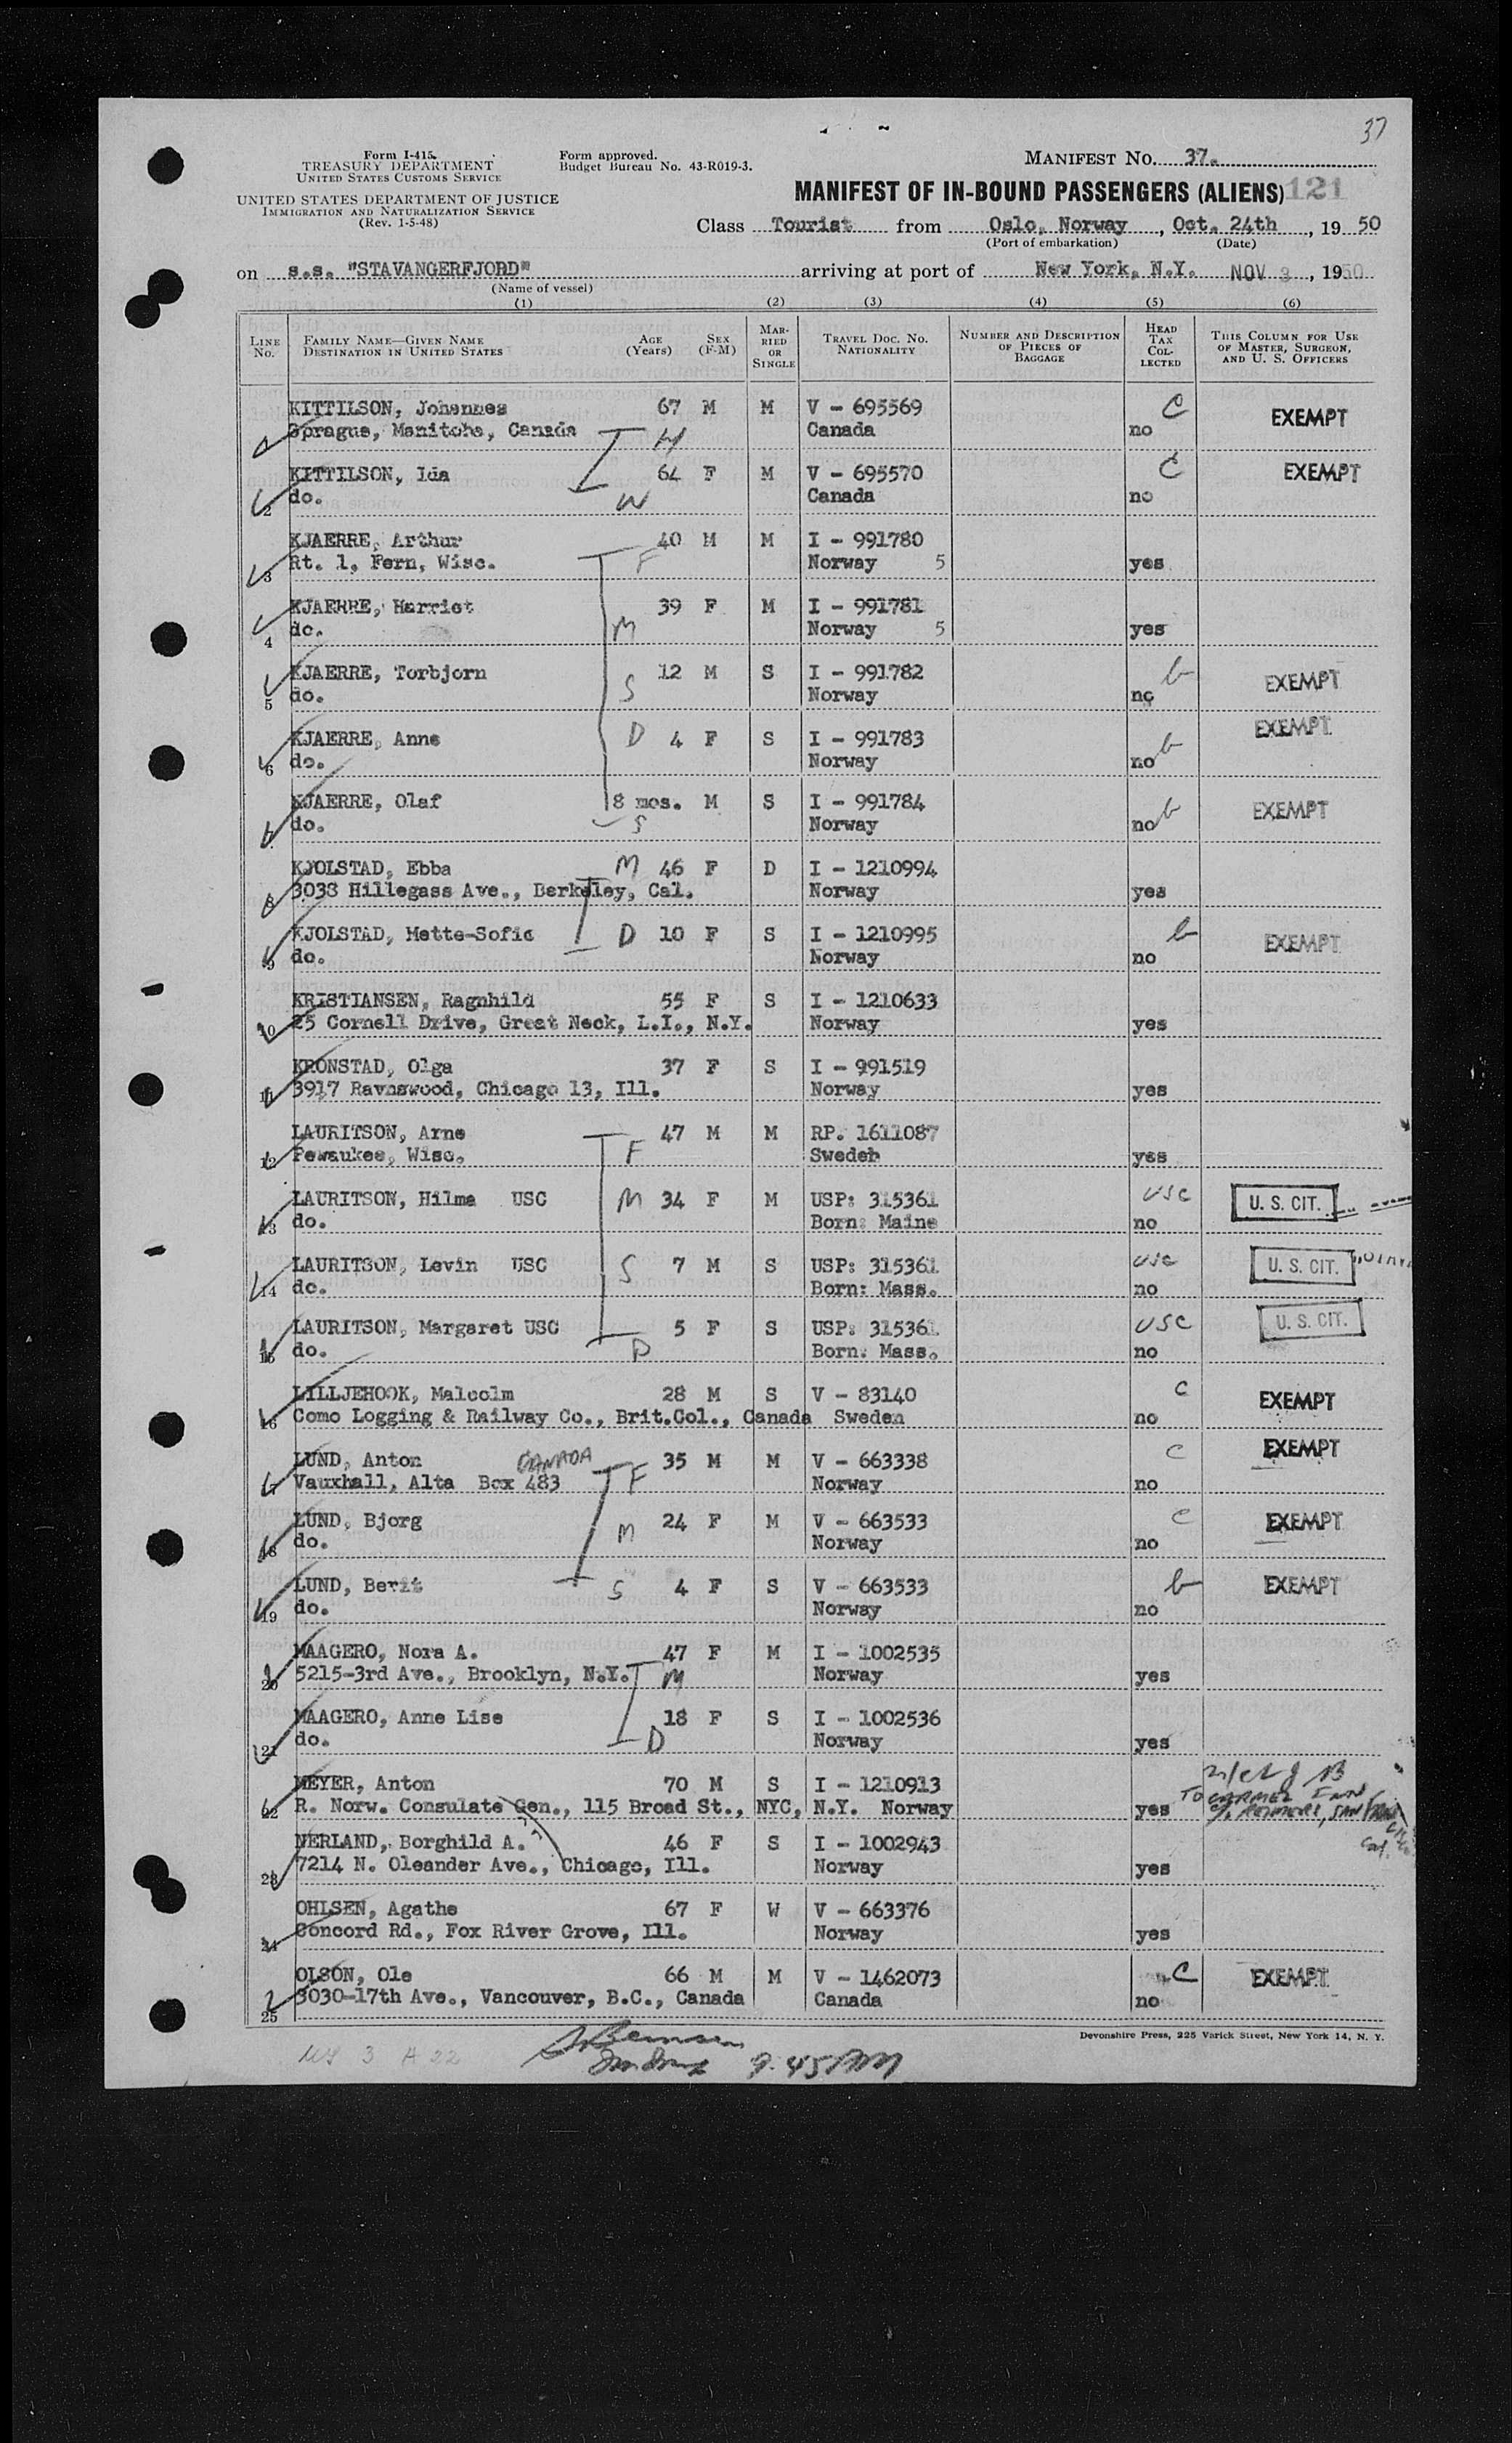 37
Form I-415.
TREASURY DEPARTMENT
UNITED STATES CUSTOMS SERVICE
UNITED STATES DEPARTMENT OF JUSTICE
IMMIGRATION AND NATURALIZATION SERVICE
(Rev. 1-5-48)
Form approved.
Budget Bureau No. 43-R019-3.
MANIFEST NO. 37.
MANIFEST OF IN-BOUND PASSENGERS (ALIENS) 121
Class Tourist from Oslo, Norway, Oct. 24th, 19 50
(Port of embarkation) (Date)
on s.s. "STAVANGERFJORD" arriving at port of New York, N.Y. NOV 3, 1950
(Name of vessel)
(1) (2) (3) (4) (5) (6)
LINE No. FAMILY NAME—GIVEN NAME DESTINATION IN UNITED STATES AGE (Years) SEX (F-M) MARRIED OR SINGLE TRAVEL DOC. NO. NATIONALITY NUMBER AND DESCRIPTION OF PIECES OF BAGGAGE HEAD TAX COLLECTED THIS COLUMN FOR USE OF MASTER, SURGEON, AND U. S. OFFICERS
KITTILSON, Johannes 67 M M V - 695569 C EXEMPT
Sprague, Manitoba, Canada H Canada no
KITTILSON, Ida 64 F M V - 695570 C EXEMPT
2 do. W Canada no
KJAERRE, Arthur 40 M M I - 991780
3 Rt. 1, Fern, Wisc. F Norway 5 yes
KJAERRE, Harriet 39 F M I - 991781
4 do. M Norway 5 yes
KJAERRE, Torbjorn 12 M S I - 991782 b EXEMPT
5 do. S Norway no
KJAERRE, Anne D 4 F S I - 991783 b EXEMPT
6 do. Norway no
KJAERRE, Olaf 8 mos. M S I - 991784 b EXEMPT
7 do. S Norway no
KJOLSTAD, Ebba M 46 F D I - 1210994
8 3038 Hillegass Ave., Berkeley, Cal. Norway yes
KJOLSTAD, Mette-Sofie D 10 F S I - 1210995 b EXEMPT
9 do. Norway no
KRISTIANSEN, Ragnhild 55 F S I - 1210633
10 25 Cornell Drive, Great Neck, L.I., N.Y. Norway yes
KRONSTAD, Olga 37 F S I - 991519
11 3917 Ravnswood, Chicago 13, Ill. Norway yes
LAURITSON, Arne 47 M M RP. 1611087
12 Pewaukee, Wisc. F Sweden yes
LAURITSON, Hilma USC M 34 F M USP: 315361 USC U. S. CIT.
13 do. Born: Maine no
LAURITSON, Levin USC S 7 M S USP: 315361 USC U. S. CIT.
14 do. Born: Mass. no
LAURITSON, Margaret USC 5 F S USP: 315361 USC U. S. CIT.
15 do. D Born: Mass. no
LILLJEHOOK, Malcolm 28 M S V - 83140 C EXEMPT
16 Como Logging & Railway Co., Brit.Col., Canada Sweden no
LUND, Anton CANADA 35 M M V - 663338 C EXEMPT
17 Vauxhall, Alta Box 483 F Norway no
LUND, Bjorg M 24 F M V - 663533 C EXEMPT
18 do. Norway no
LUND, Berit S 4 F S V - 663533 b EXEMPT
19 do. Norway no
MAAGERO, Nora A. 47 F M I - 1002535
20 5215-3rd Ave., Brooklyn, N.Y. M Norway yes
MAAGERO, Anne Lise 18 F S I - 1002536
21 do. D Norway yes
MEYER, Anton 70 M S I - 1210913
22 R. Norw. Consulate Gen., 115 Broad St., NYC, N.Y. Norway yes TO CARMEL INN
SAN
Cal.
NERLAND, Borghild A. 46 F S I - 1002943
23 7214 N. Oleander Ave., Chicago, Ill. Norway yes
OHLSEN, Agathe 67 F W V - 663376
24 Concord Rd., Fox River Grove, Ill. Norway yes
OLSON, Ole 66 M M V - 1462073 C EXEMPT
25 3030-17th Ave., Vancouver, B.C., Canada Canada no
Devonshire Press, 225 Varick Street, New York 14, N. Y.
9.45 AM